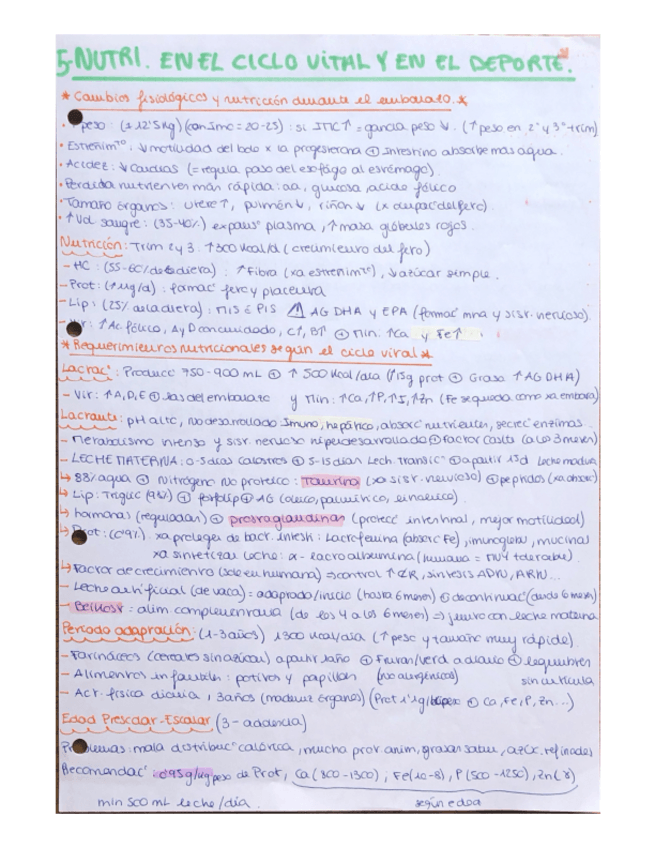 5-NUTRI. EN EL CICLO VITAL Y EN EL DEPORTE.
* Cambios fisiológicos y nutrición durante el embarazo. *
· ↑peso: (±12'5kg) (con Imc = 20-25) : si IMC↑ = ganacia peso ↓. (↑peso en 2º y 3º trim)
· Estreñim^to: ↓ motilidad del bolo x la progesterona ⊕ Intestino absorbe mas agua.
· Acidez: ↓ cardias (= regula paso del esófago al estómago).
· Pérdida nutrientes más rápida: aa, glucosa, acido fólico
· Tamaño órganos: utero↑, pulmón↓, riñón↓ (x del feto).
· ↑Vol sangre: (35-40%) expans° plasma, ↑masa glóbulos rojos.
Nutrición: Trim 2 y 3: ↑300 kcal/d (crecimiento del feto)
- HC: (55-60% de dieta): ↑Fibra (xa estreñim^to), ↓azúcar simple.
- Prot: (↑1g/d): formac° feto y placenta
- Lip: (25% dieta): MIS é PIS ⚠ AG DHA y EPA (formac° mna y sist. nervioso).
↑Ac. fólico, A y D cuidado, C↑, B↑ ⊕ Min. ↑Ca y Fe↑
* Requerimientos nutricionales según el ciclo vital *
Lactac°: Produce 750-900 mL ⊕ ↑500 kcal/día (↑15g prot ⊕ Grasa ↑AG DHA)
- Vit: ↑A, D, E ⊕ las del embarazo y Min: ↑Ca, ↑P, ↑I, ↑Zn (Fe se queda como xa embara)
Lactante: pH alto, no desarrollado Inmuno, hepático, absorc° nutrientes, secrec° enzimas.
- Metabolismo intenso y sist. nervioso hiperdesarrollado ⊕ factor casts (a los 3 meses)
- LECHE MATERNA: 0-5 días calostros ⊕ 5-15 dias Lech. transic° ⊕ a partir 15d Leche madura
↳ 88% agua ⊕ Nitrógeno No proteico: Taurina (xa sist. nervioso) ⊕ peptidos (xa absorc)
↳ Lip: Triglic (98%) ⊕ fosfolip ⊕ AG (oleico, palmítico, linoleico).
↳ hormonas (reguladan) ⊕ prostaglandinas (protecc° intestinal, mejor motilidad)
↳ Prot: (0'9%). xa proteger de bact. intesti: Lactoferrina (absorc Fe), inmunoglob, mucinas
xa sintetizar leche: α-lactoalbumina (humana = muy tolerable).
↳ Factor de crecimiento (sólo en humana) ⇒ control ↑, sintesis ADN, ARN...
- Leche artificial (de vaca) = adaptado/inicio (hasta 6 meses) ⊕ de continuac° (desde 6 mes)
- Beikost = alim complementaria (de los 4 a los 6 meses) ⇒ junto con leche materna
Período adaptación: (1-3 años) 1300 kcal/día (↑peso y tamaño muy rápide).
- Farináceos (cereales sin azúcar) a partir 1año ⊕ Frutan/verd a diario ⊕ legumbres
- Alimentos infantiles: potitos y papillas (No alergénicos) sin cutícula
- Act. física diaria, 3años (madurez órganos) (Prot 1'1g/kgpeso ⊕ Ca, Fe, P, Zn...)
Edad Prescolar-Escolar (3 - adolencia)
Problemas: mala distribuc° calórica, mucha prot anim, grasas satur, azúc. refinados
Recomendac°: 0'95g/kg peso de Prot, Ca (800-1300), Fe (10-8), P (500-1250), Zn (8)
min 500 mL leche/día. según edad